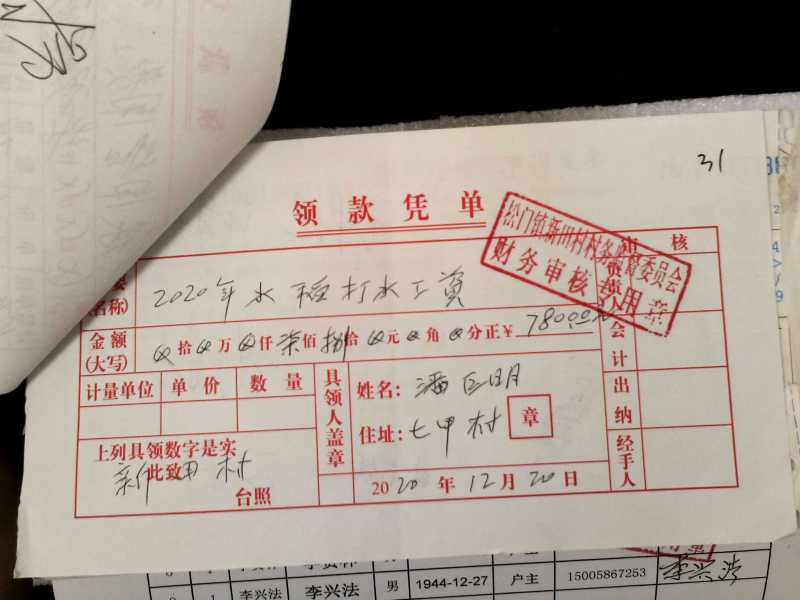 31
领款凭单
松门镇新田村村务监督委员会
财务审核专用章
审核
名称)
2020年水稻打水工资
金额
(大写)
拾 万 仟柒佰捌拾 元 角 分正¥ 780.00元
会计
计量单位 单价 数量
具领人盖章
姓名:潘
出纳
住址:七甲村
章
经手人
上列具领数字是实
此致
新田村
台照
2020年12月20日
1 李兴法 李兴法 男 1944-12-27 户主 15005867253 李兴法